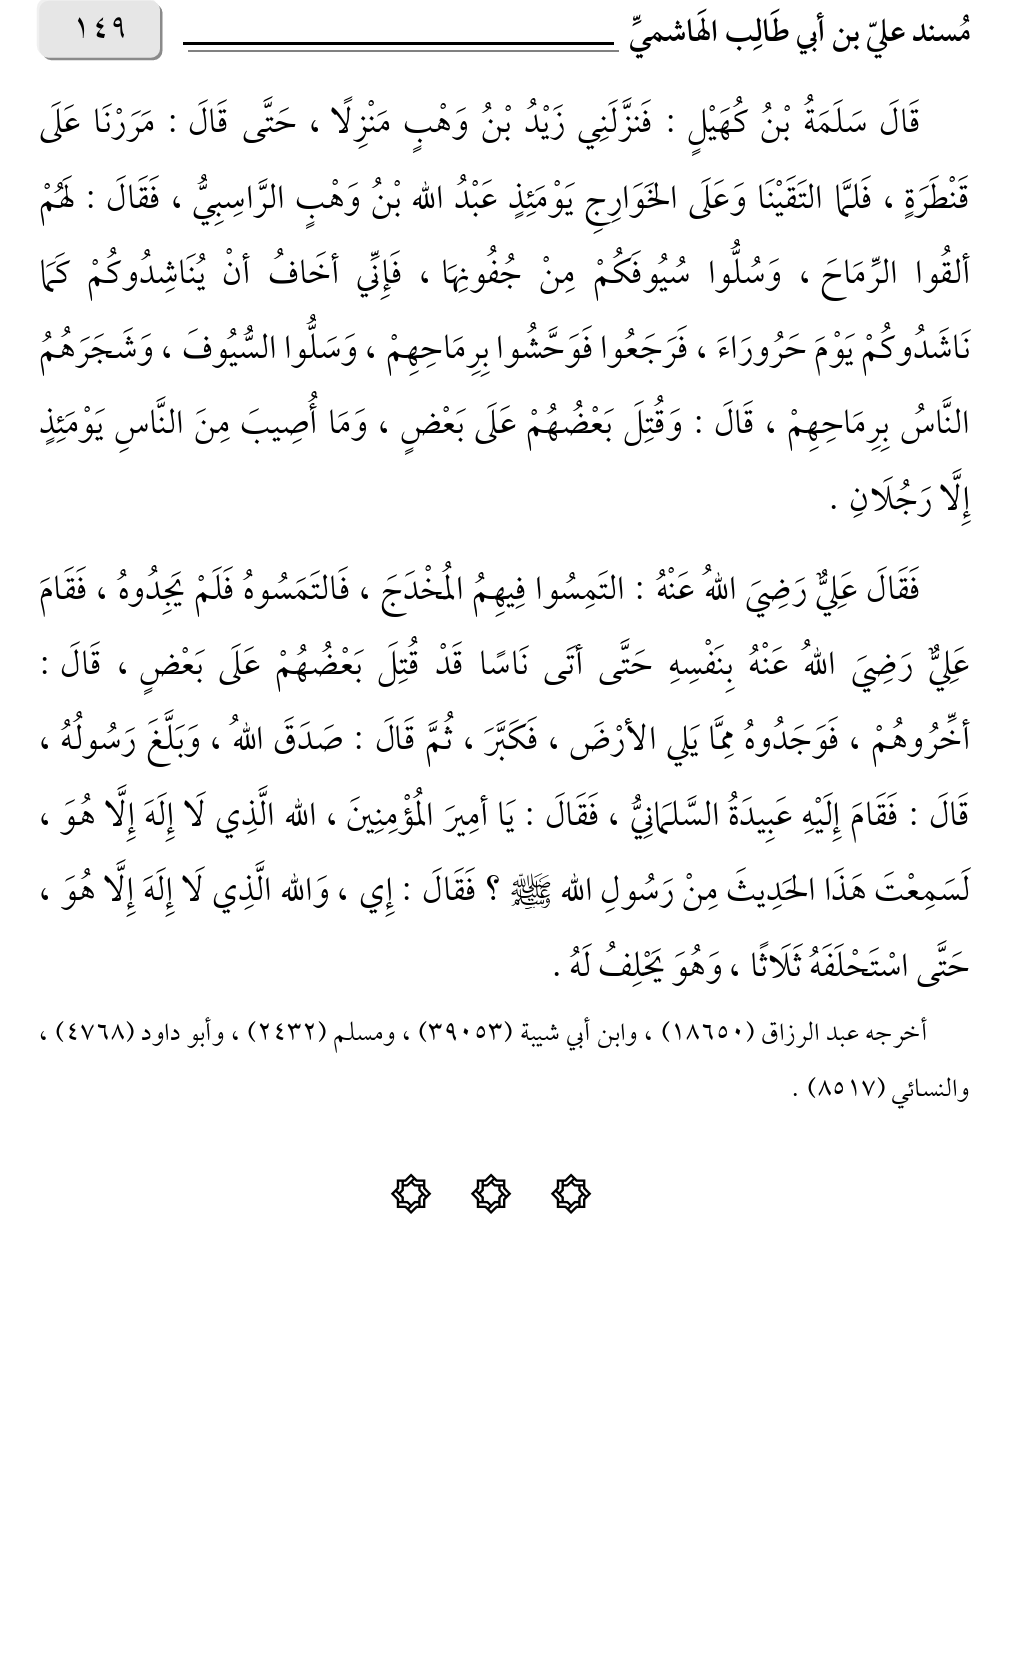 مُسند عليّ بن أبي طَالِب الهَاشميِّ ١٤٩
قَالَ سَلَمَةُ بْنُ كُهَيْلٍ : فَنزَّلَنِي زَيْدُ بْنُ وَهْبٍ مَنْزِلًا ، حَتَّى قَالَ : مَرَرْنَا عَلَى
قَنْطَرَةٍ ، فَلمَّا التَقَيْنَا وَعَلَى الخَوَارِجِ يَوْمَئِذٍ عَبْدُ الله بْنُ وَهْبٍ الرَّاسِبِيُّ ، فَقَالَ : لَهُمْ
ألقُوا الرِّمَاحَ ، وَسُلُّوا سُيُوفَكُمْ مِنْ جُفُونِهَا ، فَإِنِّي أخَافُ أنْ يُنَاشِدُوكُمْ كَمَا
نَاشَدُوكُمْ يَوْمَ حَرُورَاءَ ، فَرَجَعُوا فَوَحَّشُوا بِرِمَاحِهِمْ ، وَسَلُّوا السُّيُوفَ ، وَشَجَرَهُمُ
النَّاسُ بِرِمَاحِهِمْ ، قَالَ : وَقُتِلَ بَعْضُهُمْ عَلَى بَعْضٍ ، وَمَا أُصِيبَ مِنَ النَّاسِ يَوْمَئِذٍ
إِلَّا رَجُلَانِ .
فَقَالَ عَلِيٌّ رَضِيَ اللهُ عَنْهُ : التَمِسُوا فِيهِمُ المُخْدَجَ ، فَالتَمَسُوهُ فَلَمْ يَجِدُوهُ ، فَقَامَ
عَلِيٌّ رَضِيَ اللهُ عَنْهُ بِنَفْسِهِ حَتَّى أتَى نَاسًا قَدْ قُتِلَ بَعْضُهُمْ عَلَى بَعْضٍ ، قَالَ :
أخِّرُوهُمْ ، فَوَجَدُوهُ مِمَّا يَلي الأرْضَ ، فَكَبَّرَ ، ثُمَّ قَالَ : صَدَقَ اللهُ ، وَبَلَّغَ رَسُولُهُ ،
قَالَ : فَقَامَ إِلَيْهِ عَبِيدَةُ السَّلمَانِيُّ ، فَقَالَ : يَا أمِيرَ المُؤْمِنِينَ ، الله الَّذِي لَا إِلَهَ إِلَّا هُوَ ،
لَسَمِعْتَ هَذَا الحَدِيثَ مِنْ رَسُولِ الله ﷺ ؟ فَقَالَ : إِي ، وَالله الَّذِي لَا إِلَهَ إِلَّا هُوَ ،
حَتَّى اسْتَحْلَفَهُ ثَلَاثًا ، وَهُوَ يَحْلِفُ لَهُ .
أخرجه عبد الرزاق (١٨٦٥٠) ، وابن أبي شيبة (٣٩٠٥٣) ، ومسلم (٢٤٣٢) ، وأبو داود (٤٧٦٨) ،
والنسائي (٨٥١٧) .